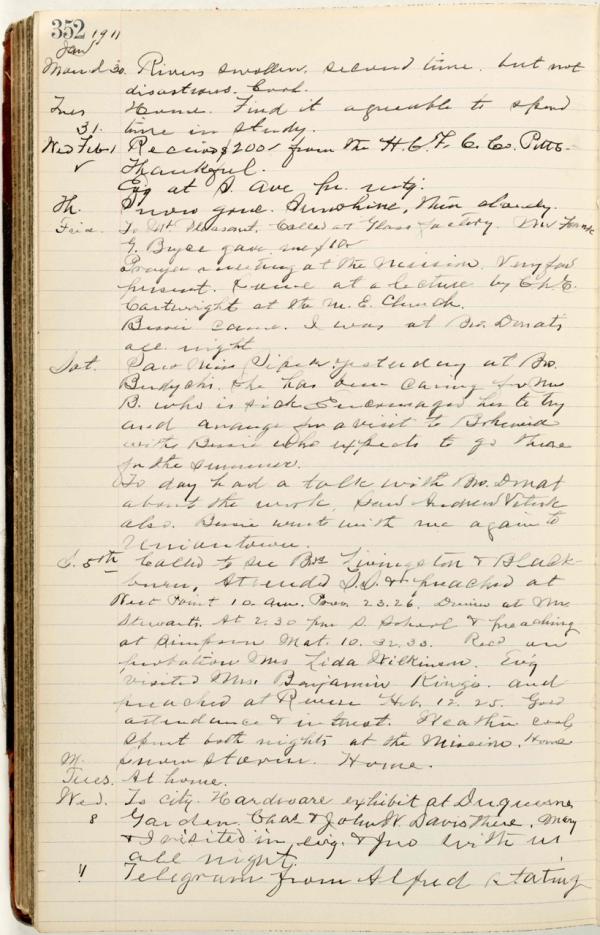 352 1911
Jan
Mond 30. Rivers swollen, second time, but not
disastrous. Cool.
Tues Home. Find it agreeable to spend
31. time in study.
Wed Feb 1 Received $200 from the H. C. F. C. Co. Pitts-
✓ Thankful.
Evg at S. Ave pr. metg.
Th. Snow gone. Sunshine, then cloudy.
Frid. To Mt Pleasant. Called at Glass factory. Mr Frank
G. Bryce gave me $10
Prayer meeting at the Mission. Very few
present. Came at a lecture by Ch. E.
Cartwright at the M. E. Church.
Bessie came. I was at Bro. Donats
all night
Sat. Saw Miss yesterday at Bro.
She has been caring for Mrs
B. who is sick. Encouraged her to try
and arrange for a visit to Bohemia
with Bessie who expects to go there
for the summer.
To day had a talk with Bro. Donat
about the work, Saw Andrew
also. Bessie went with me again to
Uniontown.
S. 5th Called to see Bros Livingston & Black-
burn, Attended S.S. & preached at
West Point 10 a.m. Prov. 23.26. Dinner at Mr
Stewarts. At 2:30 pm S. School & preaching
at Simpson Mat. 10. 32, 33. Rec'd on
probation Mrs. Lida Wilkinson. Ev'g
visited Mrs. Benjamin Kings. and
preached at Revere Heb. 12. 25. Good
attendance & interest. Weather cool
Spent both nights at the Mission. Home
M. snow storm. Home.
Tues. At home.
Wed. To city. Hardware exhibit at Duquesne
8 Garden. Chas & John W. Davis there. Mary
& I visited in evg. & Jno with us
all night.
" Telegram from Alfred stating